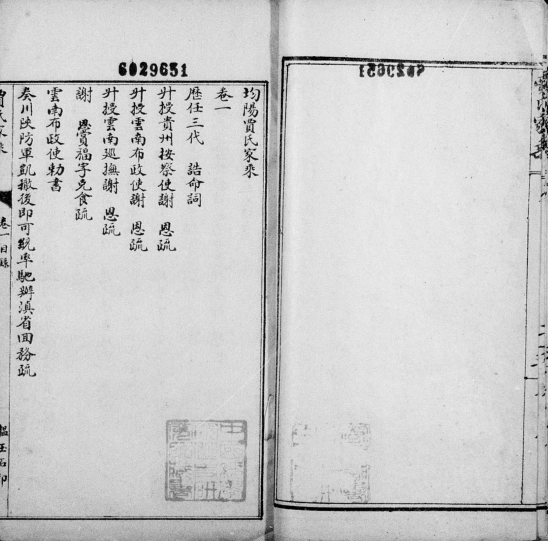 6029651
均陽賈氏家乘
卷一
歷任三代 誥命詞
升授貴州按察使謝 恩疏
升授雲南布政使謝 恩疏
升授雲南廵撫謝 恩疏
謝 賞福字克食疏
雲南布政使勅書
奏川陝防軍凱撤後即可統率馳辦滇省回務疏
賈氏家乘 卷一目錄
石印